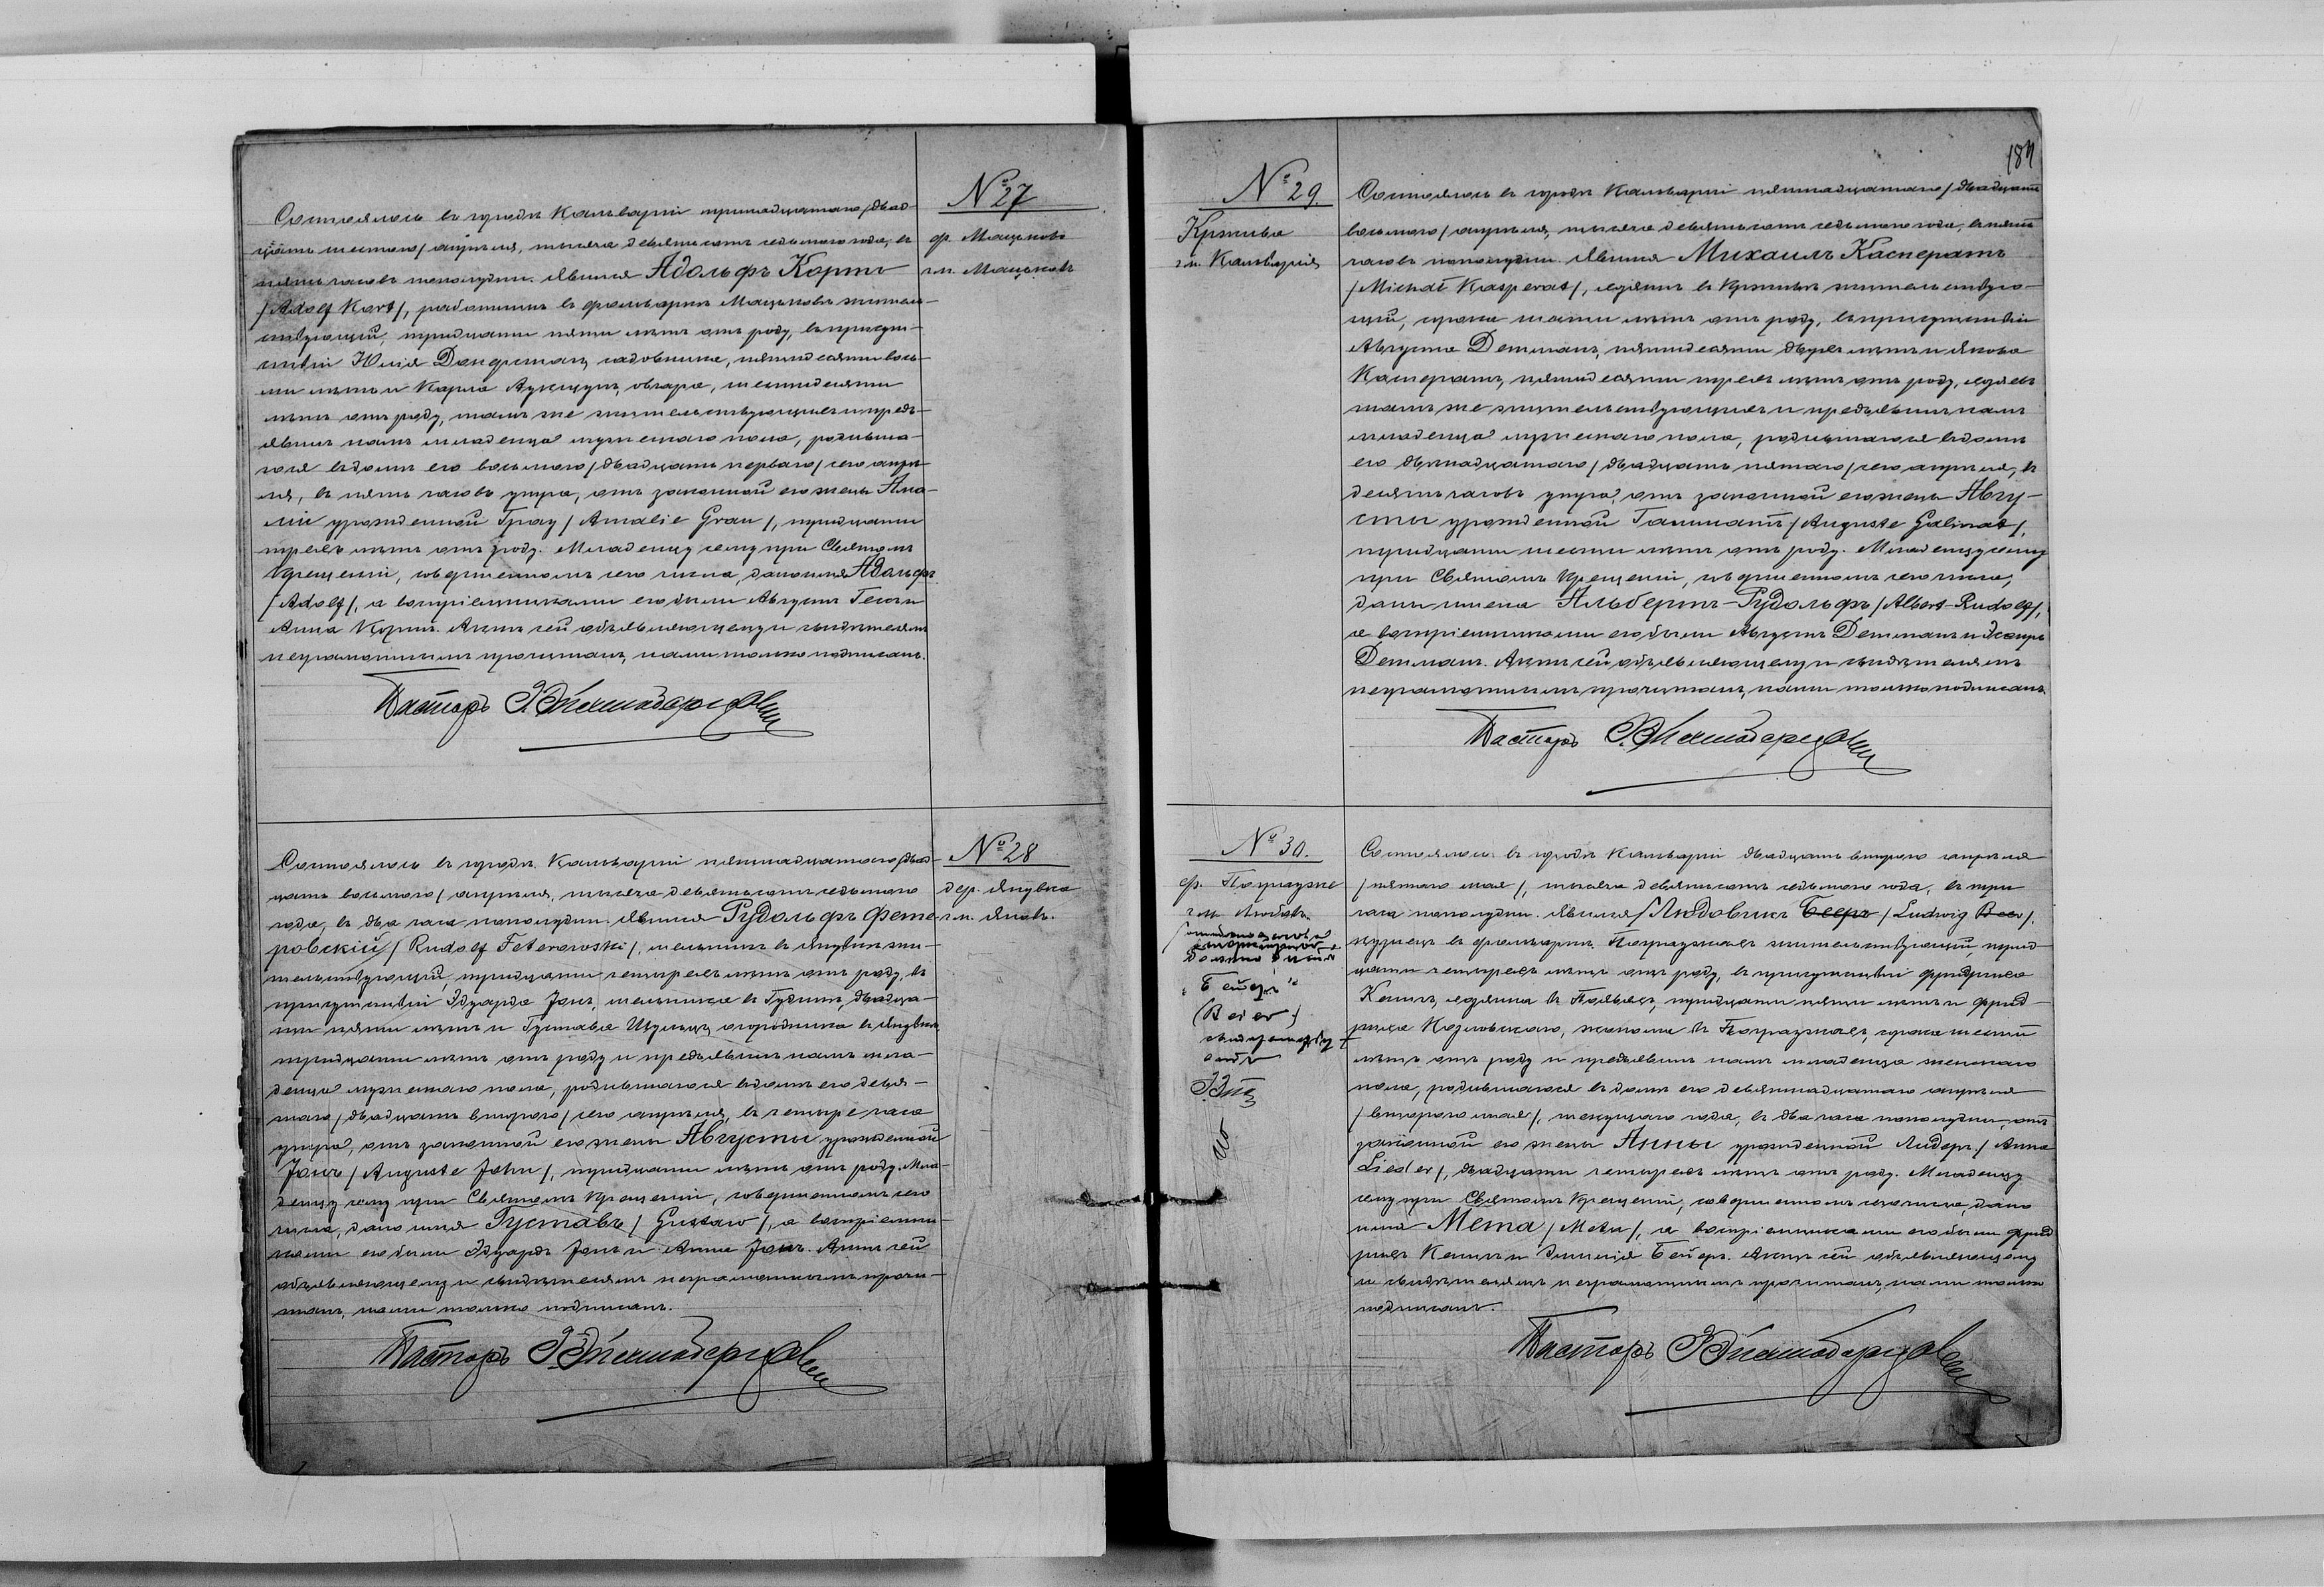 № 27
ф. Мацьково
гм. Мацьковъ
Состоялось въ городѣ Кальваріи тринадцатаго /двад-
цать шестого/ апрѣля, тысяча девятьсотъ седьмого года, въ
пять часовъ пополудни. Явился Адольфъ Кортъ
/Adolf Kort/, работникъ въ фольваркѣ Мацьковъ житель-
ствующій, тридцати пяти лѣтъ отъ роду, въ присут-
ствіи Юлія садовника, пятидесяти вось-
ми лѣтъ и Карла овчара, шестидесяти
лѣтъ отъ роду, тамъ же жительствующихъ и предъ-
явилъ намъ младенца мужескаго пола, родивша-
гося въ домѣ его восьмого /двадцать перваго/ сего апрѣ-
ля, въ пять часовъ утра, отъ законной его жены Ама-
ліи урожденной Грау /Amalie Grau/, тридцати
трехъ лѣтъ отъ роду. Младенцу сему при Святомъ
Крещеніи, совершенномъ сего числа, дано имя Адольфъ
/Adolf/, а воспріемниками его были Августъ и
Анна Кортъ. Актъ сей объявляющему и свидѣтелямъ
неграмотнымъ прочитанъ, нами только подписанъ.
Пасторъ
№ 28
дер. Янувка
гм. Яновъ.
Состоялось въ городѣ Кальваріи пятнадцатаго /двад-
цать восьмого/ апрѣля, тысяча девятьсотъ седьмого
года, въ два часа пополудни. Явился Рудольфъ Фете-
ровскій /Rudolf Feterowski/, мельникъ въ Янувкѣ жи-
тельствующій, тридцати четырехъ лѣтъ отъ роду, въ
присутствіи Эдуарда Jонъ, мельника въ двадца-
ти пяти лѣтъ и Густава Шульцъ, огородника въ Янувкѣ,
тридцати лѣтъ отъ роду и предъявилъ намъ мла-
денца мужескаго пола, родившагося въ домѣ его девя-
таго /двадцать второго/ сего апрѣля, въ четыре часа
утра, отъ законной его жены Августы урожденной
Jонъ /Auguste John/, тридцати лѣтъ отъ роду. Мла-
денцу сему при Святомъ Крещеніи, совершенномъ сего
числа, дано имя Густавъ /Gustaw/, а воспріемни-
ками его были Эдуардъ Jонъ и Анна Jонъ. Актъ сей
объявляющему и свидѣтелямъ неграмотнымъ прочи-
танъ, нами только подписанъ.
Пасторъ
184
№ 29
гм. Кальварія
Состоялось въ городѣ Кальваріи пятнадцатаго /двадцать
восьмого/ апрѣля, тысяча девятьсотъ седьмого года, въ пять
часовъ пополудни. Явился Михаилъ Касператъ
/Michał Kasperat/, жительствую-
щій, сорока шести лѣтъ отъ роду, въ присутствіи
Августа Детманъ, пятидесяти двухъ лѣтъ и Якова
Касператъ, пятидесяти трехъ лѣтъ отъ роду,
тамъ же жительствующихъ и предъявилъ намъ
младенца мужескаго пола, родившагося въ домѣ
его двѣнадцатаго /двадцать пятаго/ сего апрѣля, въ
девять часовъ утра, отъ законной его жены Авгу-
сты урожденной Галинатъ /Auguste Galinat/,
тридцати шести лѣтъ отъ роду. Младенцу сему
при Святомъ Крещеніи, совершенномъ сего числа,
даны имена Альбертъ-Рудольфъ /Albert-Rudolf/,
а воспріемниками его были Августъ Детманъ и
Детманъ. Актъ сей объявляющему и свидѣтелямъ
неграмотнымъ прочитанъ, нами только подписанъ.
Пасторъ
№ 30.
гм. Любовъ
„Бейеръ“
(Beier)
Состоялось въ городѣ Кальваріи двадцать второго апрѣля
/пятаго мая/, тысяча девятьсотъ седьмого года, въ три
часа пополудни. Явился Людовикъ Бееръ /Ludwig Beer/,
кузнецъ въ фольваркѣ жительствующій, трид-
цати четырехъ лѣтъ отъ роду, въ присутствіи Фридриха
тридцати пяти лѣтъ и Фрид-
риха Козловскаго, эконома въ сорока шести
лѣтъ отъ роду и предъявилъ намъ младенца женскаго
пола, родившагося въ домѣ его девятнадцатаго апрѣля
/второго мая/, текущаго года, въ два часа пополудни, отъ
законной его жены Анны урожденной Лидеръ /Anna
Lieder/, двадцати четырехъ лѣтъ отъ роду. Младенцу
сему при Святомъ Крещеніи, совершенномъ сего числа, дано
имя Мета /Meta/, а воспріемниками его были Фрид-
рихъ и Бейеръ. Актъ сей объявляющему
и свидѣтелямъ неграмотнымъ прочитанъ, нами только
подписанъ.
Пасторъ